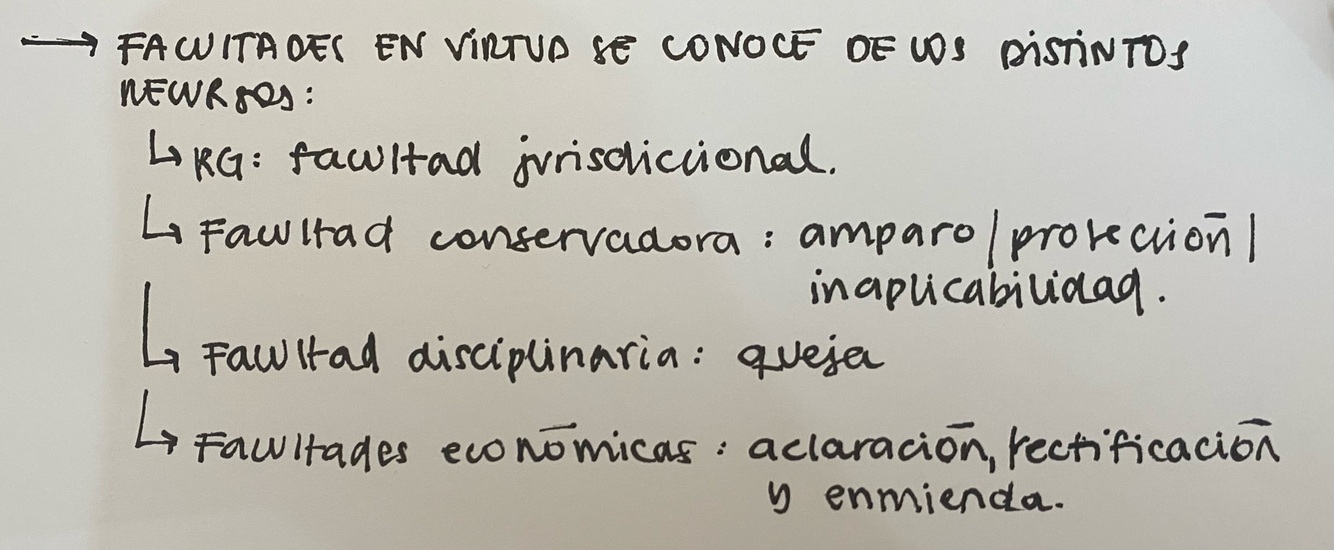 → FACULTADES EN VIRTUD SE CONOCE DE LOS DISTINTOS
RECURSOS:
↳ RG: facultad jurisdiccional.
↳ Facultad conservadora: amparo/protección/
inaplicabilidad.
↳ Facultad disciplinaria: queja
↳ Facultades económicas: aclaración, rectificación
y enmienda.